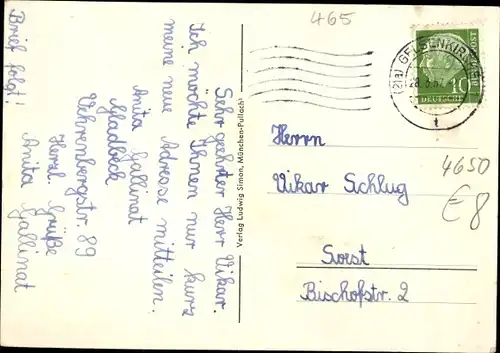 465
(21a) GELSENKIRCHEN
DEUTSCHE
POST
10
Herrn
Vikar Schlug
Soest
Bischofstr. 2
4650
€8
Verlag Ludwig Simon, München-Pullach
Sehr geehrter Herr Vikar.
Ich möchte Ihnen nur kurz
meine neue Adresse mitteilen.
Anita Gallinat
Gladbeck
Vehrenbergstr. 89
Herzl. Grüße
Anita Gallinat
Brief folgt!